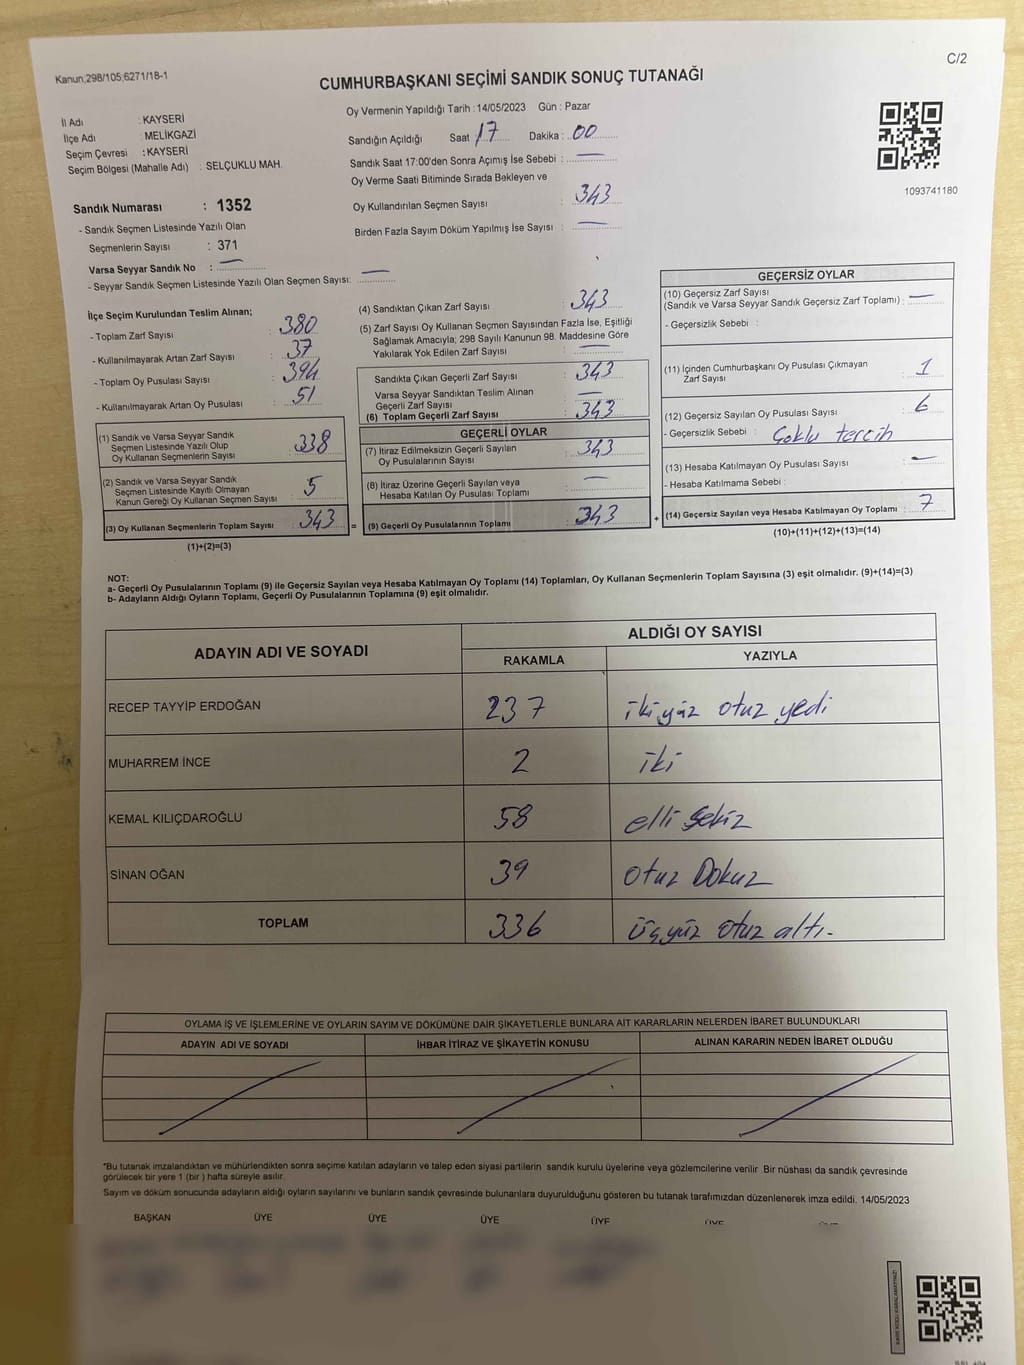 Kanun;298/105;6271/18-1
C/2
CUMHURBAŞKANI SEÇİMİ SANDIK SONUÇ TUTANAĞI
İl Adı : KAYSERİ
İlçe Adı : MELİKGAZİ
Seçim Çevresi : KAYSERİ
Seçim Bölgesi (Mahalle Adı) : SELÇUKLU MAH.
Oy Vermenin Yapıldığı Tarih : 14/05/2023 Gün : Pazar
Sandığın Açıldığı Saat 17 Dakika : 00
Sandık Saat 17:00'den Sonra Açımış İse Sebebi : —
Oy Verme Saati Bitiminde Sırada Bekleyen ve
Oy Kullandırılan Seçmen Sayısı : 343
Birden Fazla Sayım Döküm Yapılmış İse Sayısı : —
1093741180
Sandık Numarası : 1352
- Sandık Seçmen Listesinde Yazılı Olan
Seçmenlerin Sayısı : 371
Varsa Seyyar Sandık No : —
- Seyyar Sandık Seçmen Listesinde Yazılı Olan Seçmen Sayısı: —
İlçe Seçim Kurulundan Teslim Alınan;
- Toplam Zarf Sayısı : 380
- Kullanılmayarak Artan Zarf Sayısı : 37
- Toplam Oy Pusulası Sayısı : 394
- Kullanılmayarak Artan Oy Pusulası : 51
(1) Sandık ve Varsa Seyyar Sandık
Seçmen Listesinde Yazılı Olup
Oy Kullanan Seçmenlerin Sayısı : 338
(2) Sandık ve Varsa Seyyar Sandık
Seçmen Listesinde Kayıtlı Olmayan
Kanun Gereği Oy Kullanan Seçmen Sayısı : 5
(3) Oy Kullanan Seçmenlerin Toplam Sayısı : 343 =
(1)+(2)=(3)
(4) Sandıktan Çıkan Zarf Sayısı : 343
(5) Zarf Sayısı Oy Kullanan Seçmen Sayısından Fazla İse, Eşitliği
Sağlamak Amacıyla; 298 Sayılı Kanunun 98. Maddesine Göre
Yakılarak Yok Edilen Zarf Sayısı : —
Sandıkta Çıkan Geçerli Zarf Sayısı : 343
Varsa Seyyar Sandıktan Teslim Alınan
Geçerli Zarf Sayısı : —
(6) Toplam Geçerli Zarf Sayısı : 343
GEÇERLİ OYLAR
(7) İtiraz Edilmeksizin Geçerli Sayılan
Oy Pusulalarının Sayısı : 343
(8) İtiraz Üzerine Geçerli Sayılan veya
Hesaba Katılan Oy Pusulası Toplamı : —
(9) Geçerli Oy Pusulalarının Toplamı : 343 +
GEÇERSİZ OYLAR
(10) Geçersiz Zarf Sayısı
(Sandık ve Varsa Seyyar Sandık Geçersiz Zarf Toplamı) : —
- Geçersizlik Sebebi :
(11) İçinden Cumhurbaşkanı Oy Pusulası Çıkmayan
Zarf Sayısı : 1
(12) Geçersiz Sayılan Oy Pusulası Sayısı : 6
- Geçersizlik Sebebi : Çoklu tercih
(13) Hesaba Katılmayan Oy Pusulası Sayısı : —
- Hesaba Katılmama Sebebi :
(14) Geçersiz Sayılan veya Hesaba Katılmayan Oy Toplamı : 7
(10)+(11)+(12)+(13)=(14)
NOT:
a- Geçerli Oy Pusulalarının Toplamı (9) ile Geçersiz Sayılan veya Hesaba Katılmayan Oy Toplamı (14) Toplamları, Oy Kullanan Seçmenlerin Toplam Sayısına (3) eşit olmalıdır. (9)+(14)=(3)
b- Adayların Aldığı Oyların Toplamı, Geçerli Oy Pusulalarının Toplamına (9) eşit olmalıdır.
ADAYIN ADI VE SOYADI
ALDIĞI OY SAYISI
RAKAMLA YAZIYLA
RECEP TAYYİP ERDOĞAN 237 ikiyüz otuz yedi
MUHARREM İNCE 2 iki
KEMAL KILIÇDAROĞLU 58 elli sekiz
SİNAN OĞAN 39 otuz Dokuz
TOPLAM 336 üçyüz otuz altı-
OYLAMA İŞ VE İŞLEMLERİNE VE OYLARIN SAYIM VE DÖKÜMÜNE DAİR ŞİKAYETLERLE BUNLARA AİT KARARLARIN NELERDEN İBARET BULUNDUKLARI
ADAYIN ADI VE SOYADI İHBAR İTİRAZ VE ŞİKAYETİN KONUSU ALINAN KARARIN NEDEN İBARET OLDUĞU
"Bu tutanak imzalandıktan ve mühürlendikten sonra seçime katılan adayların ve talep eden siyasi partilerin sandık kurulu üyelerine veya gözlemcilerine verilir .Bir nüshası da sandık çevresinde
görülecek bir yere 1 (bir ) hafta süreyle asılır.
Sayım ve döküm sonucunda adayların aldığı oyların sayılarını ve bunların sandık çevresinde bulunanlara duyurulduğunu gösteren bu tutanak tarafımızdan düzenlenerek imza edildi. 14/05/2023
BAŞKAN ÜYE ÜYE ÜYE ÜYE ÜYE